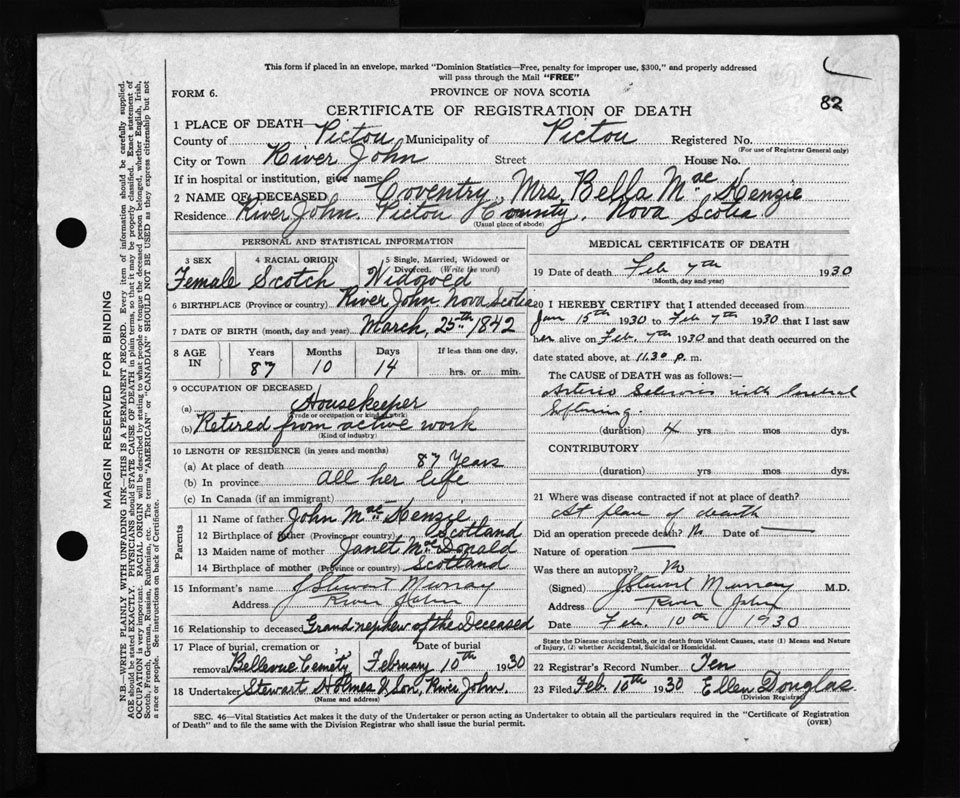 This form if placed in an envelope, marked "Dominion Statistics—Free, penalty for improper use, $300," and properly addressed
will pass through the Mail "FREE"
FORM 6.
PROVINCE OF NOVA SCOTIA
82
CERTIFICATE OF REGISTRATION OF DEATH
1 PLACE OF DEATH—
County of Pictou Municipality of Pictou Registered No.
(For use of Registrar General only)
City or Town River John Street House No.
If in hospital or institution, give name
2 NAME OF DECEASED Coventry, Mrs. Bella MacKenzie
Residence River John. Pictou County. Nova Scotia
(Usual place of abode)
PERSONAL AND STATISTICAL INFORMATION
3 SEX 4 RACIAL ORIGIN 5 Single, Married, Widowed or Divorced. (Write the word)
Female Scotch Widowed
6 BIRTHPLACE (Province or country) River John Nova Scotia
7 DATE OF BIRTH (month, day and year) March, 25th 1842
8 AGE IN Years Months Days If less than one day,
87 10 14 hrs. or min.
9 OCCUPATION OF DECEASED
(a) Housekeeper
(Trade or occupation or kind of work)
(b) Retired from active work
(Kind of industry)
10 LENGTH OF RESIDENCE (in years and months)
(a) At place of death 87 Years
(b) In province all her life
(c) In Canada (if an immigrant)
Parents
11 Name of father John MacKenzie
12 Birthplace of father (Province or country) Scotland
13 Maiden name of mother Janet MacDonald
14 Birthplace of mother (Province or country) Scotland
15 Informant's name J Stewart Murray
Address River John
16 Relationship to deceased Grand nephew of the Deceased
17 Place of burial, cremation or Date of burial
removal Bellevue Cemety February 10th 1930
18 Undertaker Stewart Holmes & Son, River John.
(Name and address)
MEDICAL CERTIFICATE OF DEATH
19 Date of death Feb 7th 1930
(Month, day and year)
20 I HEREBY CERTIFY that I attended deceased from
Jan 15th 1930 to Feb 7th 1930 that I last saw
her alive on Feb. 7th 1930 and that death occurred on the
date stated above, at 11.30 p. m.
The CAUSE of DEATH was as follows:—
Arterio Sclerosis with Cerebral
Softening.
(duration) 4 yrs mos dys.
CONTRIBUTORY
(duration) yrs mos dys.
21 Where was disease contracted if not at place of death?
At place of death
Did an operation precede death? No Date of
Nature of operation
Was there an autopsy? No
(Signed) J Stewart Murray M.D.
Address River John
Date Feb. 10th 1930
State the Disease causing Death, or in death from Violent Causes, state (1) Means and Nature
of Injury, (2) whether Accidental, Suicidal or Homicidal.
22 Registrar's Record Number Ten
23 Filed Feb. 10th 1930 Ellen Douglas
(Division Registrar)
SEC. 46—Vital Statistics Act makes it the duty of the Undertaker or person acting as Undertaker to obtain all the particulars required in the "Certificate of Registration
of Death" and to file the same with the Division Registrar who shall issue the burial permit.
(OVER)
MARGIN RESERVED FOR BINDING
N.B.—WRITE PLAINLY WITH UNFADING INK—THIS IS A PERMANENT RECORD. Every item of information should be carefully supplied.
AGE should be stated EXACTLY. PHYSICIANS should STATE CAUSE OF DEATH in plain terms, so that it may be properly classified. Exact statement of
OCCUPATION is very important. RACIAL ORIGIN will be described by stating to what people or tongue the deceased person belonged, whether English, Irish,
Scotch, French, German, Russian, Ruthenian, etc. The terms "AMERICAN" or "CANADIAN" SHOULD NOT BE USED as they express citizenship but not
a race or people. See instructions on back of Certificate.